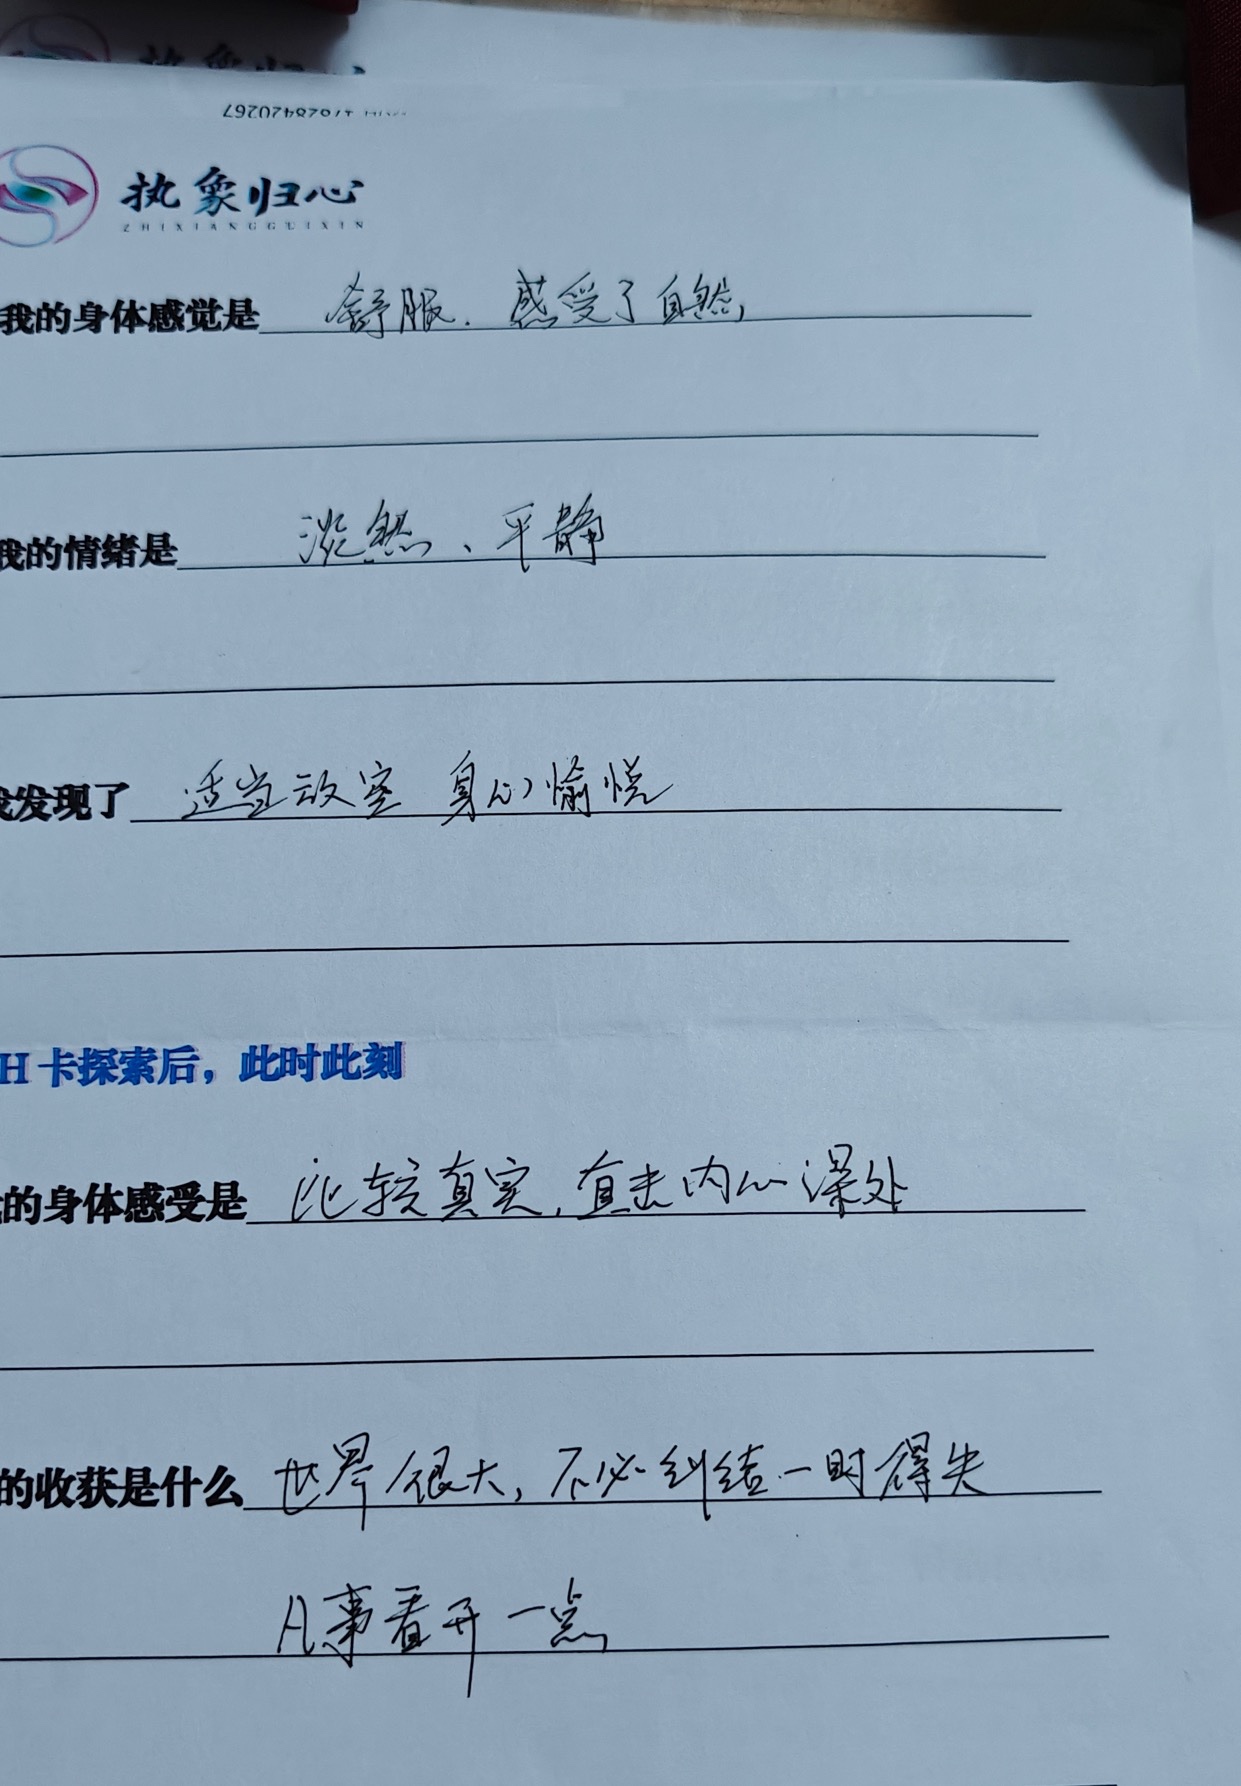 执象归心
ZHIXIANGGUIXIN
我的身体感觉是 舒服. 感受了自然,
我的情绪是 淡然、平静
我发现了 适当放空 身心愉悦
H卡探索后，此时此刻
的身体感受是 比较真实, 直击内心深处
的收获是什么 世界很大, 不必纠结一时得失
凡事看开一点